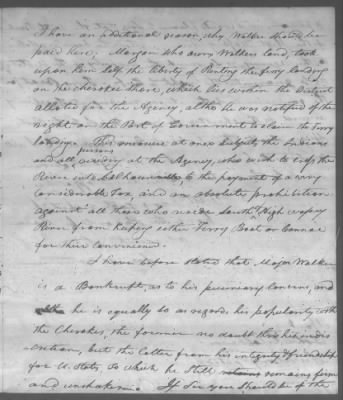 I have an additional reason why Walker should be
paid here, Morgan who owns Walkers land, took
upon him self the liberty of Renting the ferry landing
on the cherokee shore, which lies within the District
allotted for the Agency, altho he was notified of the
right on the Part of Government to claim the Ferry
landing. This measure at once subjects the Indians
and all persons residing at the Agency, who wish to cross the
River to the payment of a very
considerable tax, and an absolute prohibition
against all those who reside South
River from keeping either Ferry Boat or Cannoe
for their convenience.
I have before stated that Major Walker
is a Bankrupt, as to his pecuniary concerns, and
he is equally so as regards his popularity with
the Cherokees, the former no doubt thro his indis
cretions, but the latter from his integrity & friendship
for U. States, to which he still remains firm
and unshaken. If Sir you should be of the